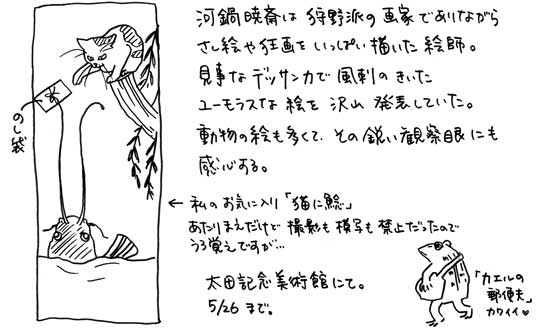 河鍋暁斎は狩野派の画家でありながら
さし絵や狂画をいっぱい描いた絵師。
見事なデッサン力で風刺のきいた
ユーモラスな絵を沢山発表していた。
動物の絵も多くて、その鋭い観察眼にも
感心する。
のし袋
← 私のお気に入り「猫に鯰」
あたりまえだけど撮影も模写も禁止だったので
うろ覚えですが…
太田記念美術館にて。
5/26まで。
「カエルの
郵便夫」
カワイイ♥